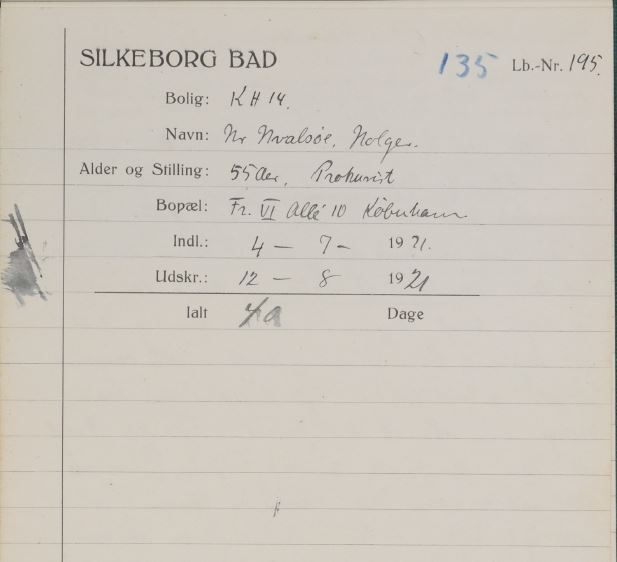 SILKEBORG BAD 135 Lb.-Nr. 195.
Bolig: KH 14.
Navn: Hr Hvalsøe, Holger.
Alder og Stilling: 55 Aar, Prokurist
Bopæl: Fr. VI Allé 10 København
Indl.: 4 — 7 - 1921.
Udskr.: 12 — 8 1921
Ialt Dage